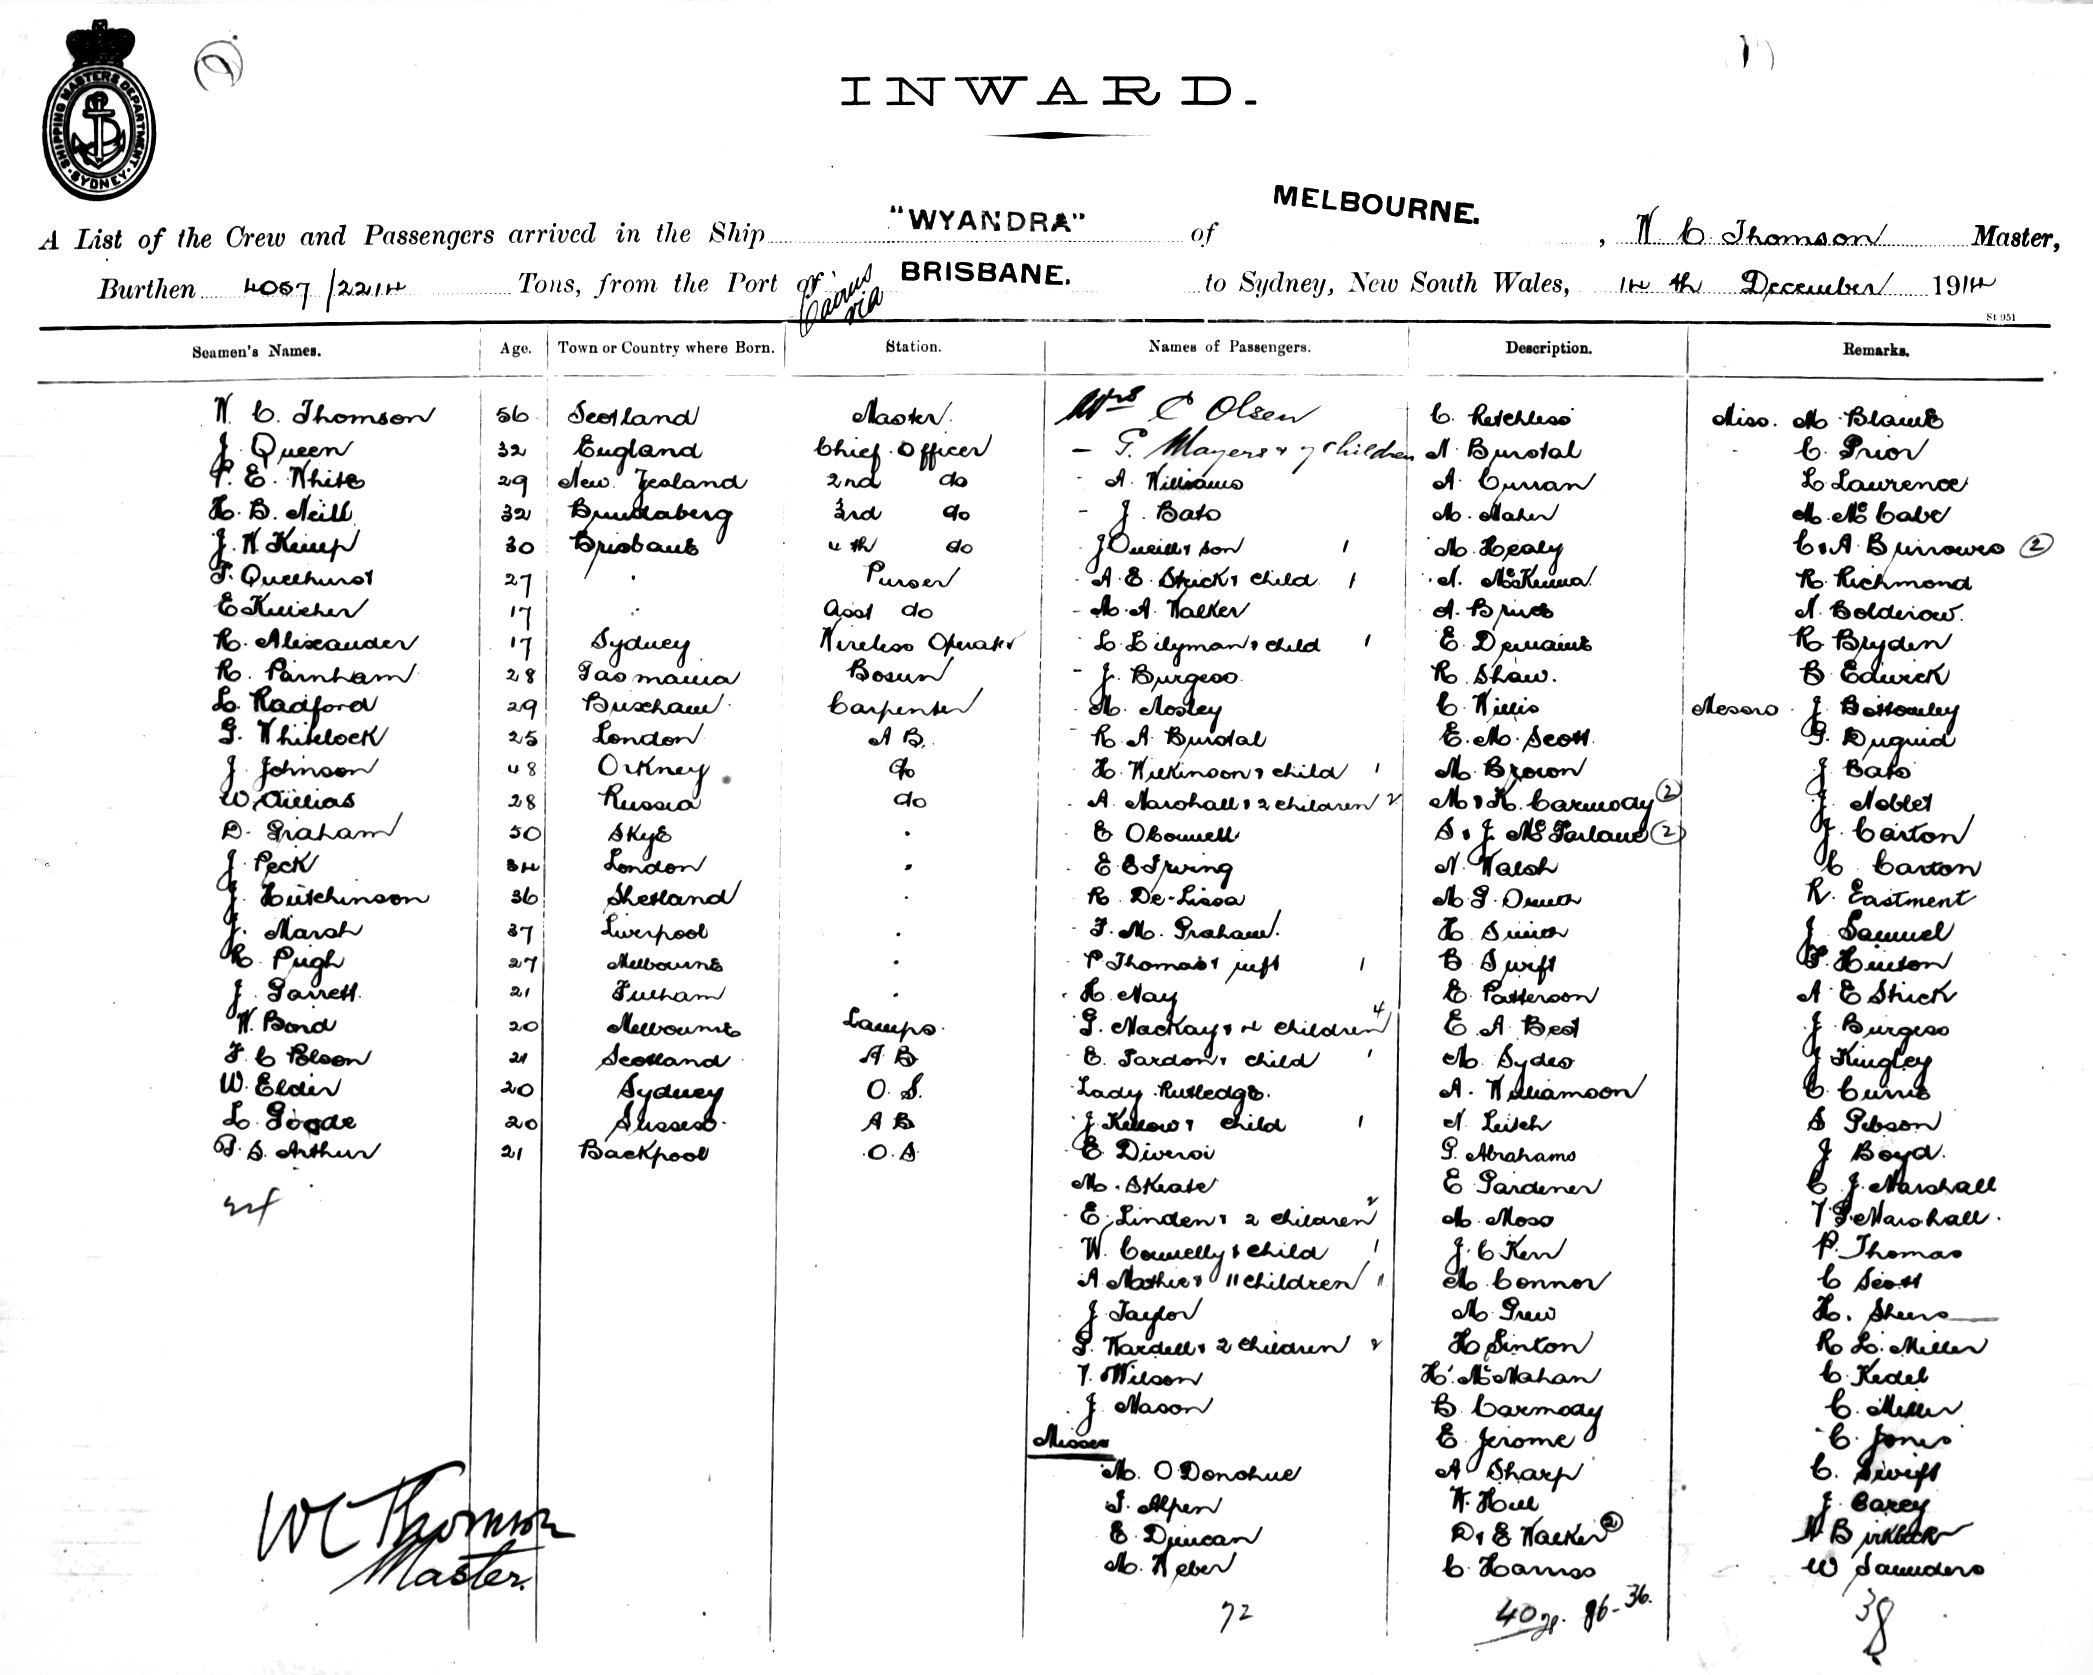 SHIPPING MASTERS DEPARTMENT SYDNEY
INWARD.
A List of the Crew and Passengers arrived in the Ship "WYANDRA" of MELBOURNE. , W C Thomson Master,
Burthen 4057/2214 Tons, from the Port of Cairns via BRISBANE. to Sydney, New South Wales, 14th December 1914
St 951
Seamen's Names. Age. Town or Country where Born. Station. Names of Passengers. Description. Remarks.
W. C. Thomson 56 Scotland Master Mrs C Olsen C. Retchless Miss. M. Blank
J. Queen 32 England Chief Officer - G. Mayers & 7 children N. Burstal C. Prior
P. E. White 29 New Zealand 2nd do - A. Williams A. Curran L Laurence
H. B. Neill 32 Bundaberg 3rd do - J. Bato M. Maher M. McCabe
J. W. Kemp 30 Brisbane 4th do J Oneill & son 1 M. Healy C & A Burrowes (2)
27 . Purser - A. E. Strick & child 1 N. McKenna R. Richmond
17 Asst do - M. A. Walker A. N. Bolderow.
R. Alexander 17 Sydney Wireless Operator - L. Lilyman & child 1 E. Demaine R Bryden
R. Parnham 28 Tasmania Bosun - J. Burgess R. Shaw. B Edwick
L. Radford 29 Brixham Carpenter - M. Mosley C. Willis Messrs J. Bottomley
G. Whitelock 25 London A B. - R. A. Burstal E. M. Scott G. Duguid
J. Johnson 48 Orkney do - H. Wilkinson & child 1 M. Brown J Bato
W. 28 Russia do - A. Marshall & 2 children 2 M & K. Carmody (2) J. Noblet
D. Graham 50 Skye . E OConnell S & J. McFarlane (2) J. Carton
J. Peck 34 London . E E Irving N. Walsh C Carton
J. Hutchinson 36 Shetland . R. De-Lissa M. G. R. Eastment
J. Marsh 37 Liverpool . F. M. Graham. H Smith J Samuel
R. Pugh 27 Melbourne . P Thomas & inft 1 B. Swift F. Hinton
J. Garrett. 21 Fulham . H. Nay E. Patterson A E Strick
W. Bond 20 Melbourne Lamps. G. MacKay & 4 children 4 E. A. Best J. Burgess
F C Polson 21 Scotland A B E. Pardon & child 1 M. Sydes J Kingley
W. Elder 20 Sydney O. S. Lady Rutledge. A. Williamson C Currie
L. Goode 20 Sussex A B J. Kellow & child 1 N. Leitch S Gibson
P. S. Arthur 21 Backpool O. S. E. Diversi G. Abrahams J Boyd.
M. Skeate E Gardener C J. Marshall
E. Linden & 2 children 2 M. Moss T G Marshall.
W. Connelly & child 1 J. C Kerr P. Thomas
A Mathie & 11 children 11 M. Connor C Scott
J Taylor M. Grew H. Sheers
G. Wardell & 2 children 2 H Sinton R L. Miller
T. Wilson H. McMahan C. Kedel
J. Mason B Carmody C. Miller
Misses E. Jerome C. Jones
M. O'Donohue A Sharp C. Swift
G. Alpen W. Hill J. Carey
E Duncan D & E Walker (2) N Birkbeck
M. Weber C. Harriss W Saunders
24
W C Thomson
Master.
72 40 78. 86-36. 38